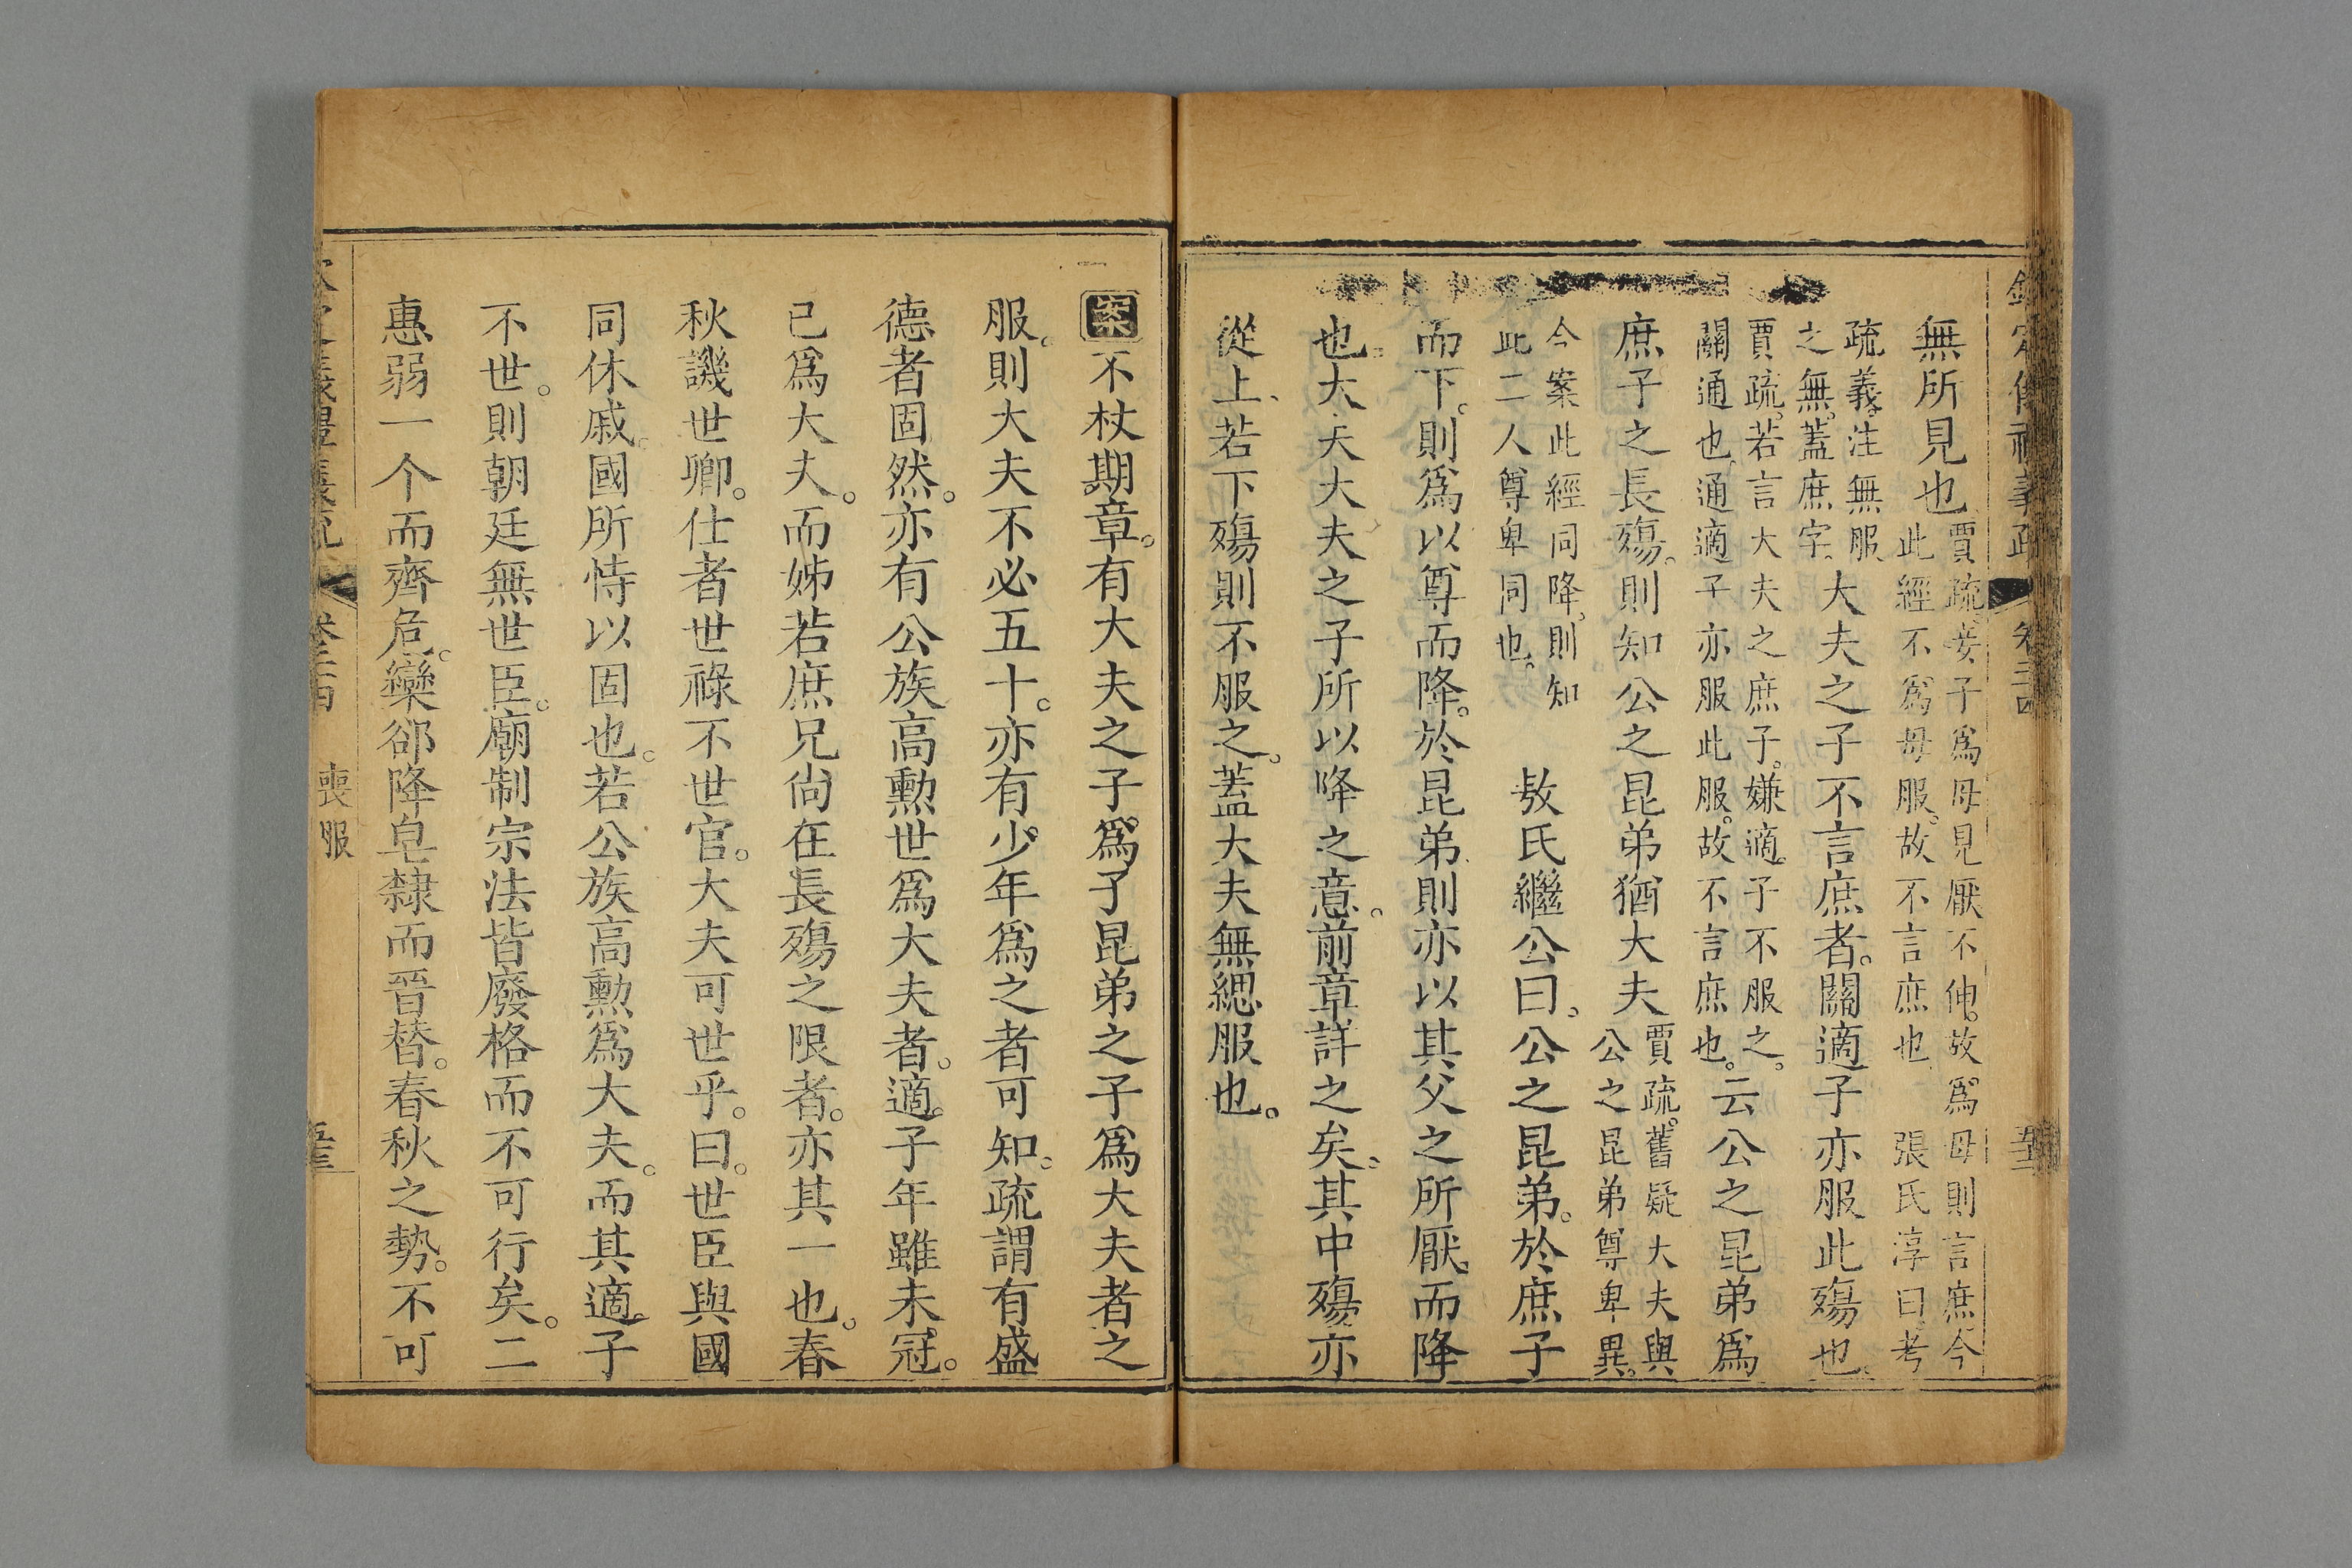 欽定儀禮義疏
無所見也賈疏。妾子爲母見厭不伸。故爲母則言庶今
此經不爲母服。故不言庶也　張氏淳曰。考
疏義。注無服
之無。蓋庶字。大夫之子不言庶者。關適子亦服此殤也。
賈疏。若言大夫之庶子。嫌適。子不服之。
關通也。通適子亦服此服。故不言庶也。云公之昆弟爲
庶子之長殤。則知公之昆弟猶大夫賈疏。舊疑大夫與
公之昆弟尊卑異。
今案此經同降。則知
此二人尊卑同也。　敖氏繼公曰。公之昆弟。於庶子
而下。則爲以尊而降。於昆弟則亦以其父之所厭。而降
也。大夫大夫之子所以降之意。前章詳之矣。其中殤亦
從上。若下殤則不服之。蓋大夫無緦服也。
案不杖期章。有大夫之子。爲子昆弟之子爲大夫者之
服。則大夫不必五十。亦有少年爲之者可知。疏謂有盛
德者固然。亦有公族高勳世爲大夫者。適。子年雖未冠。
已爲大夫。而姊若庶兄尙在長殤之限者。亦其一也。春
秋譏世卿。仕者世祿不世官。大夫可世乎。曰。世臣與國
同休戚。國所恃以固也。若公族高勳爲大夫。而其適。子
不世。則朝廷無世臣。廟制宗法皆廢格而不可行矣。二
惠弱一个而齊危。欒郤降皂隸而晉替。春秋之勢。不可
喪服